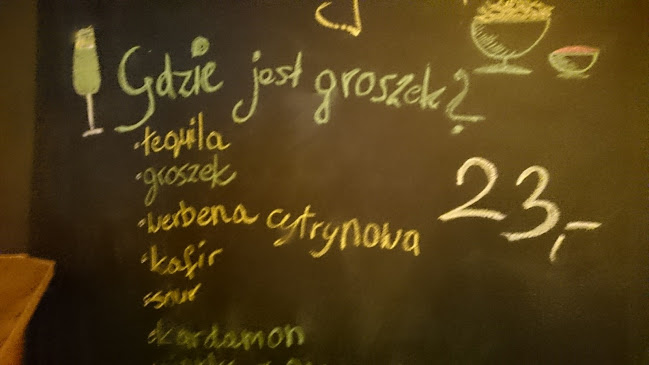 Gdzie jest groszek?
·tequila
·groszek
·werbena cytrynowa
·kafir
·sour
·kardamon
23,-